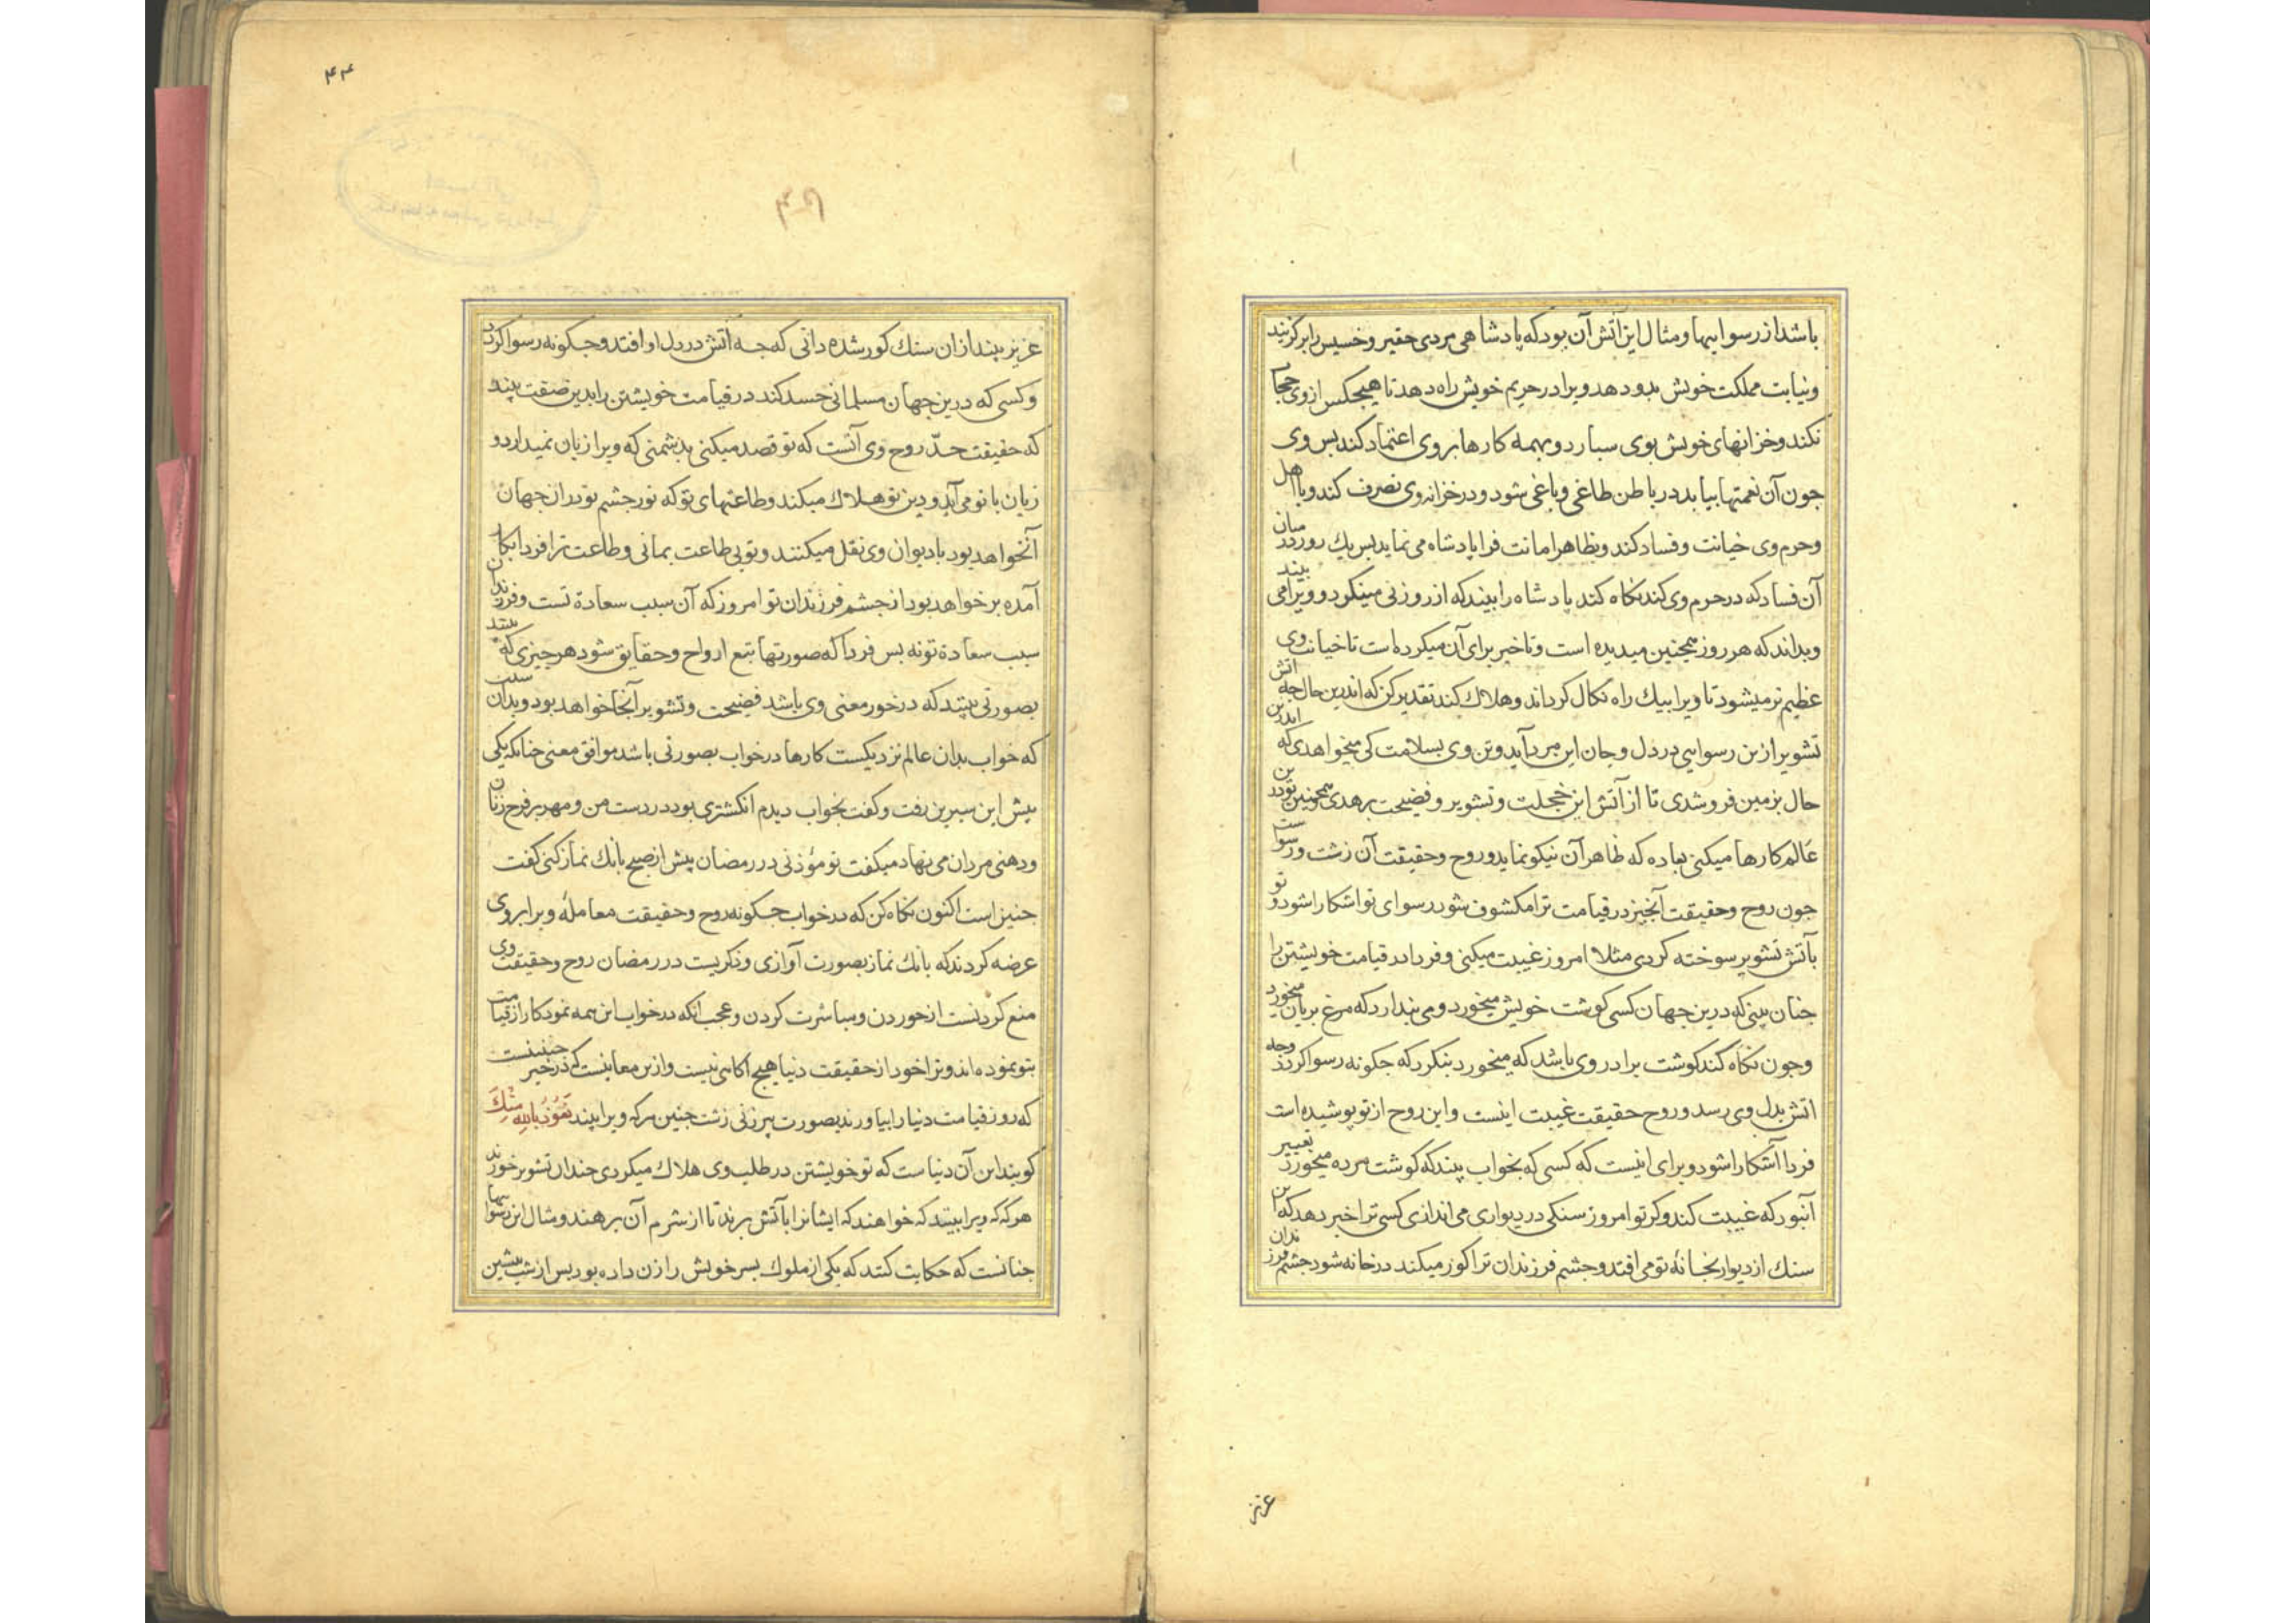 باشد از رسواییها و مثال این آتش آن بود که پادشاهی مردی حقیر و خسیس را برکزیند
و نیابت مملکت خویش بدو دهد و ویرا در حریم خویش راه دهد تا هیچکس از وی حجاب
نکند و خزانهای خویش بوی سبارد و بهمه کارها بر وی اعتماد کند بس وی
جون آن نعمتها بیابد در باطن طاغی و باغی شود و در خزانه وی تصرف کند و با اهل
و حرم وی خیانت و فساد کند و بظاهر امانت فرا پادشاه می نماید بس یك روز در میان
آن فساد که در حرم وی کند نکاه کند پادشاه را بیند که از روزنی مینکرد و ویرا می بیند
و بداند که هر روز همجنین میدیده است و تاخیر برای آن میکرده است تا خیانت وی
عظیم تر میشود تا ویرا بیك راه نکال کرداند و هلاك کند تقدیر کن که اندرین حال جه آتش
تشویر ازین رسوایی در دل و جان این مرد آید و تن وی بسلامت کی میخواهدی که اندرین
حال بزمین فرو شدی تا از آتش این خجلت و تشویر و فضیحت برهدی همجنین تو درین
عالم کارها میکنی بعاده که ظاهر آن نیکو نماید و روح و حقیقت آن زشت و رسواست
جون روح و حقیقت آنجیز در قیامت ترا مکشوف شود رسوای تو اشکارا شود و تو
بآتش تشویر سوخته کردی مثلا امروز غیبت میکنی و فردا در قیامت خویشتن را
جنان بینی که درین جهان کسی کوشت خویش میخورد و می بندارد که مرغ بریان میخورد
وجون نکاه کند کوشت برادر وی باشد که میخورد بنکر که جکونه رسوا کردد وجه
اتش بدل وی رسد و روح حقیقت غیبت اینست و این روح از تو پوشیده است
فردا آشکارا شود و برای اینست که کسی که بخواب بیند که کوشت مرده میخورد تعبیر
آنبود که غیبت کند و کر تو امروز سنکی در دیواری می اندازی کسی ترا خبر دهد که این
سنك از دیوار بخانهٔ تو می افتد و جشم فرزندان ترا کور میکند در خانه شود جشم فرزندان
عزیز
۴۴
عزیز بیند از ان سنك کور شده دانی که جه آتش در دل او افتد و جکونه رسوا کردد
و کسی که درین جهان مسلمانی حسد کند در قیامت خویشتن را بدین صفت بیند
که حقیقت حسد روح وی آنست که تو قصد میکنی بدشمنی که ویرا زیان نمیدارد و
زیان با تو می آید و دین تو هلاك میکند و طاعتهای تو که نور جشم تو در ان جهان
آنخواهد بود با دیوان وی نقل میکنند و تو بی طاعت بمانی و طاعت ترا فردا بکار
آمده بر خواهد بود از جشم فرزندان تو امروز که آن سبب سعادة تست و فرزندان
سبب سعادة تو نه بس فردا که صورتها تبع ارواح و حقایق شود هر جیزی که بینند
بصورتی بینند که در خور معنی وی باشد فضیحت و تشویر آنجا خواهد بود و بدان سبب
که خواب بدان عالم نزدیکست کارها در خواب بصورتی باشد موافق معنی جنانکه یکی
بیش ابن سیرین رفت و کفت بخواب دیدم انکشتری بود در دست من و مهر بر فرج زنان
و دهنی مردان می نهاد میکفت تو مؤذنی در رمضان پیش از صبح بانك نماز کنی کفت
جنیز است اکنون نکاه کن که در خواب جکونه روح و حقیقت معاملهٔ ویرا بر وی
عرضه کردند که بانك نماز بصورت آوازی و ذکریست در رمضان روح و حقیقت وی
منع کردنست از خوردن و مباشرت کردن و عجب انکه در خواب این همه نمود کار از قیامت
بتو نموده اند و ترا خود از حقیقت دنیا هیچ اکاهی نیست و ازین معاینست که در خبر جنینست
که روز قیامت دنیا را بیاورند بصورت پیرزنی زشت جنین هرکه ویرا بیند نَعُوذُ بِاللهِ مِنْكَ
کویند این آن دنیاست که تو خویشتن در طلب وی هلاك میکردی جندان تشویر خورند
هر که که ویرا ببینند که خواهند که ایشانرا بآتش برند تا از شرم آن برهند و مثال این رسواییها
جنانست که حکایت کنند که یکی از ملوك بسر خویش را زن داده بود بس از شب بیشین